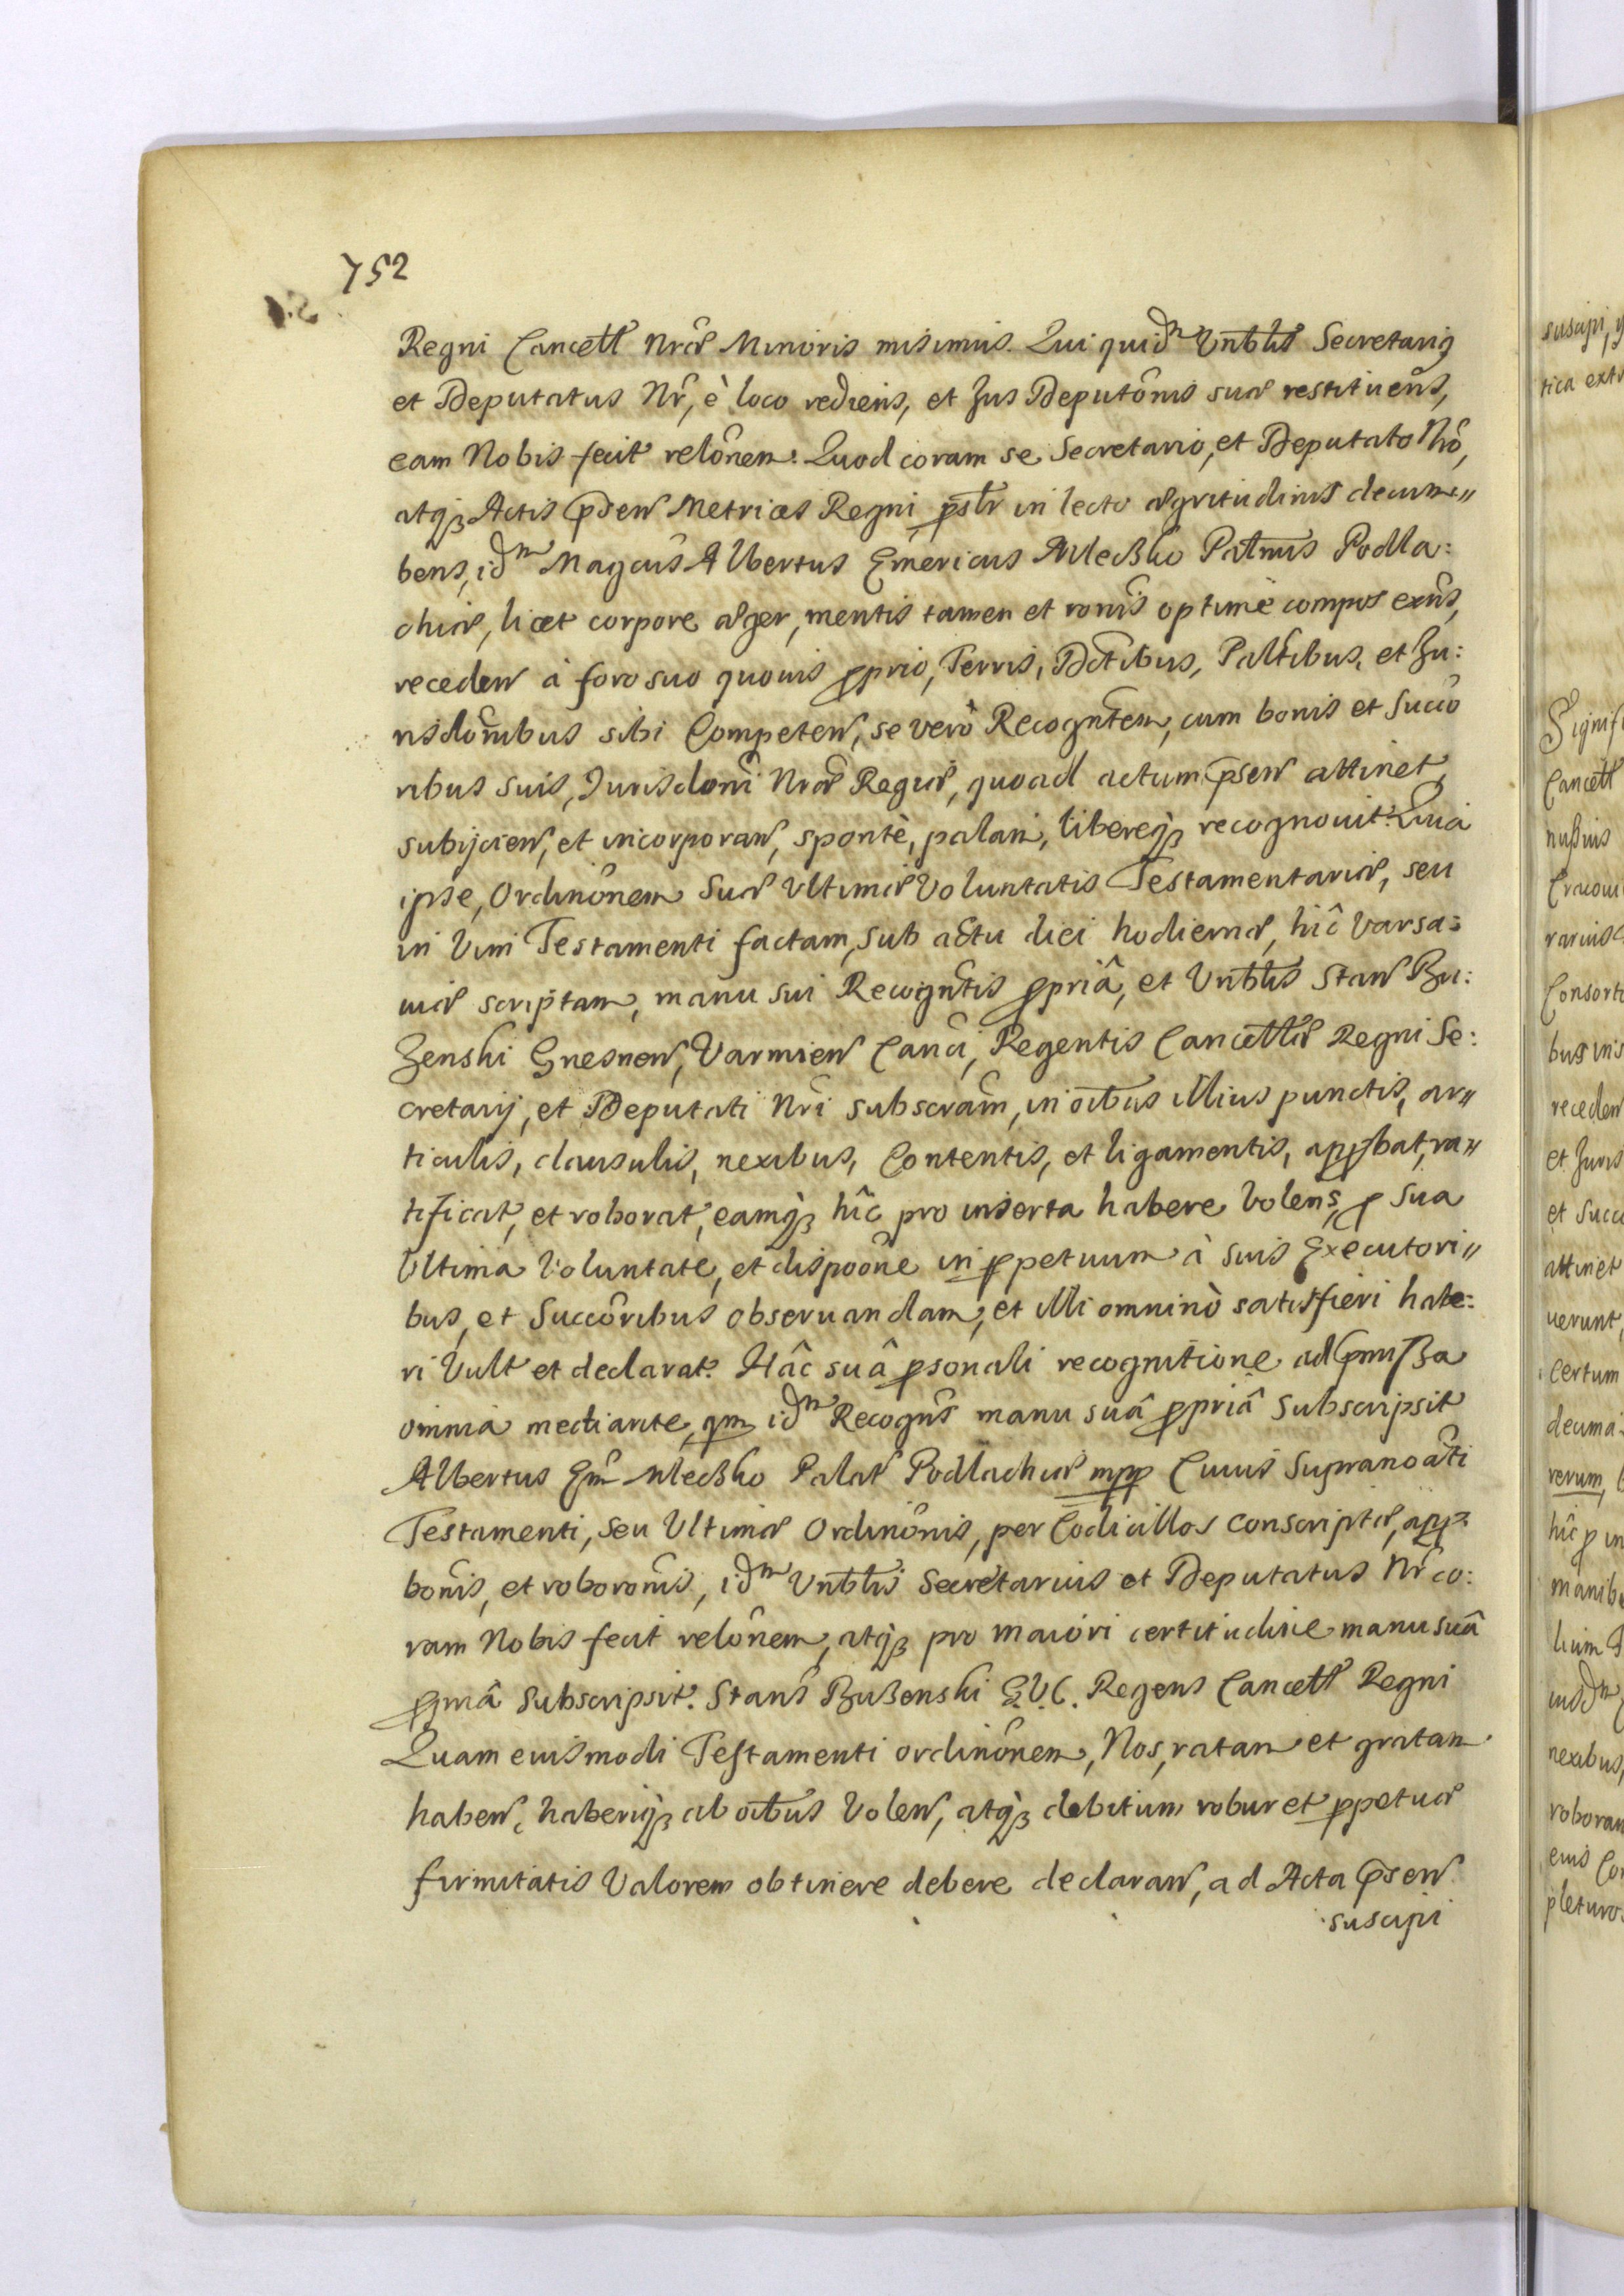 752
Regni Cancell Nræ Minoris misimus. Qui quidm Vnblis Secretariꝯ
et Deputatus Nr̂, è loco rediens, et Jus Deputônis suæ restituens̃,
eam Nobis fecit relônem. Quod coram se Secretario, et Deputato Nrô,
atqꝫ Actis p̃sen Metrices Regni psl̃r in lecto ægritudinis decum„
bens, idm Magcus Albertus Emericus Mleczko Palñus Podla:
chiæ, licet corpore æger, mentis tamen et ronis̃ optimè compos exñs,
receden à foro suo quouis ꝓprio, Terris, Dctibus, Paltibus, et Ju:
risdônibus sibi Competen, se verò Recogntem, cum bonis et Succo
ribus suis, Jurisdoni Nræ Regiæ, quoad actum p̃sen attinet,
subijcien, et incorporan, spontè, palam, libereqꝫ recognouit. Quia
ipse, Ordinônem Suæ Vltimæ Voluntatis Testamentariæ, seu
in Vim Testamenti factam, sub actu diei hodiernæ, hîc Varsa:
uiæ scriptam, manu sui Recogntis ꝓpriâ, et Vnblis Stan Bu:
Zenski Gnesnen, Varmien Canci, Regentis Cancellæ Regni Se:
cretarij, et Deputati Nri subscram̂, in oibus illius punctis, ar„
ticulis, clausulis, nexibus, Contentis, et ligamentis, apꝓbat, ra„
tificat, et roborat, eamqꝫ hîc pro inserta habere Volens, ꝓ sua
Vltima Voluntate, et dispoône in ꝑpetuum à suis Executori„
bus, et Succôribus obseruandam, et illi omninò satisfieri habe:
ri Vult et declarat. Hâc suâ ꝑsonali recognitione ad p̃missa
omnia mediante, qm idm Recogñs manu suâ ꝓpriâ Subscripsit
Albertus Em̃ Mleczko Palat Podlachiæ mpp Cuius Supranoâti
Testamenti, seu Vltimæ Ordinônis, per Codicillos conscriptæ, apꝓ
bonîs, et roboronîs, idm Vnblis Secretarius et Deputatus Nr̂ co:
ram Nobis fecit relônem, atqꝫ pro maiori certitudine manu suâ
ꝓpriâ Subscripsit. Stans̃ Buzenski G.V.C. Regens Cancell Regni
Quam eiusmodi Testamenti ordinônem, Nos, ratam et gratam
haben, haberiqꝫ ab oibus Volen, atqꝫ debitum robur et ꝑpetuæ
firmitatis Valorem obtinere debere declaran, ad Acta p̃sen
suscipi
suscipi,
tica
Signif
Cancell
Consort
receden
et Juris
et Succ
attinet
uerunt,
certum
rerum,
hîc ꝓ in
nexibus,
roboran
eius Con
pleturo